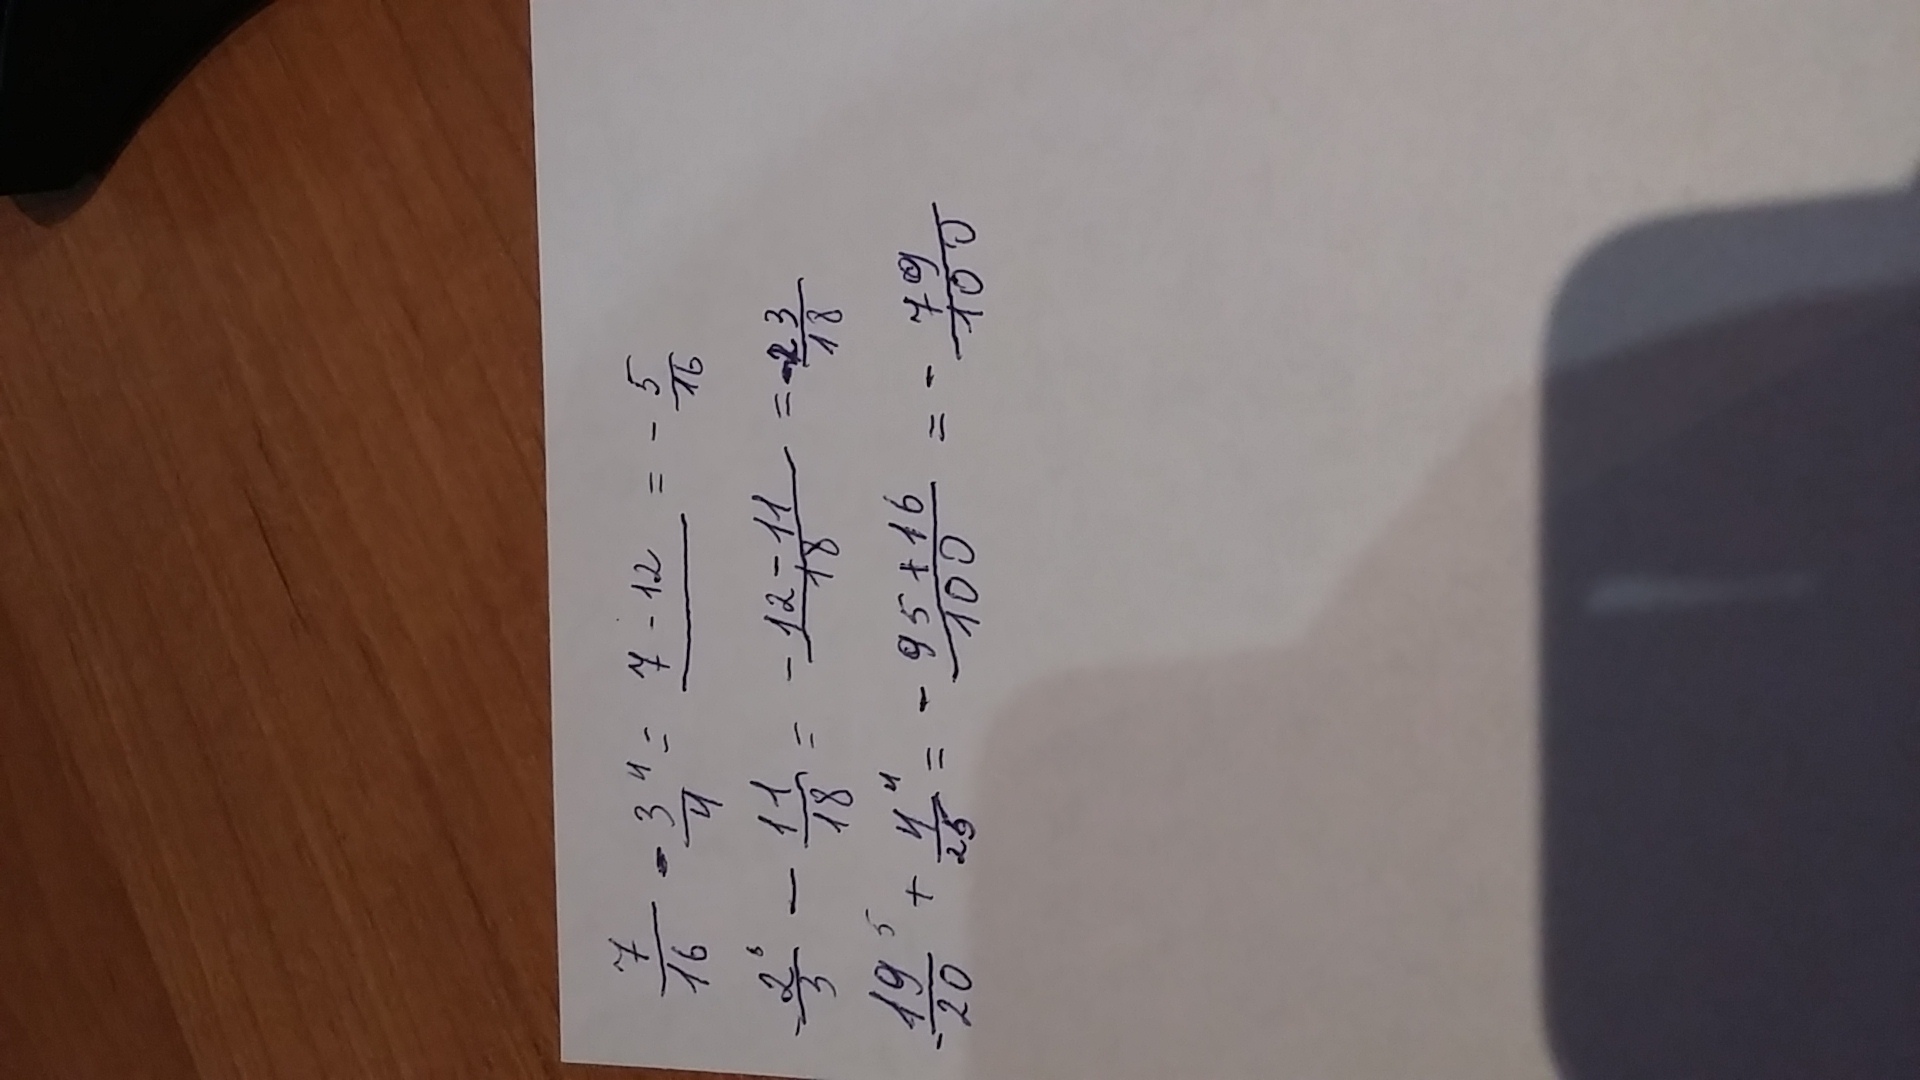 7/16 - 3/4 ⁴ = 7 - 12/ = - 5/16
- 2/3 - 11/18 = - 12 - 11/18 = - 23/18
- 19/20 ⁵ + 4/25 ⁴ = - 95 + 16/100 = - 79/100